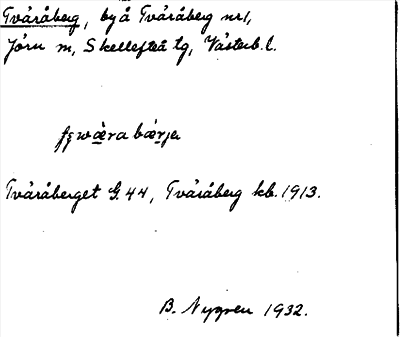 Tväråberg, by å Tväråberg nr 1,
Jörn sn, Skellefteå tg, Västerb. l.
bæ̀rje
Tväråberget G. 44, Tväråberg kb. 1913.
B. Nygren 1932.